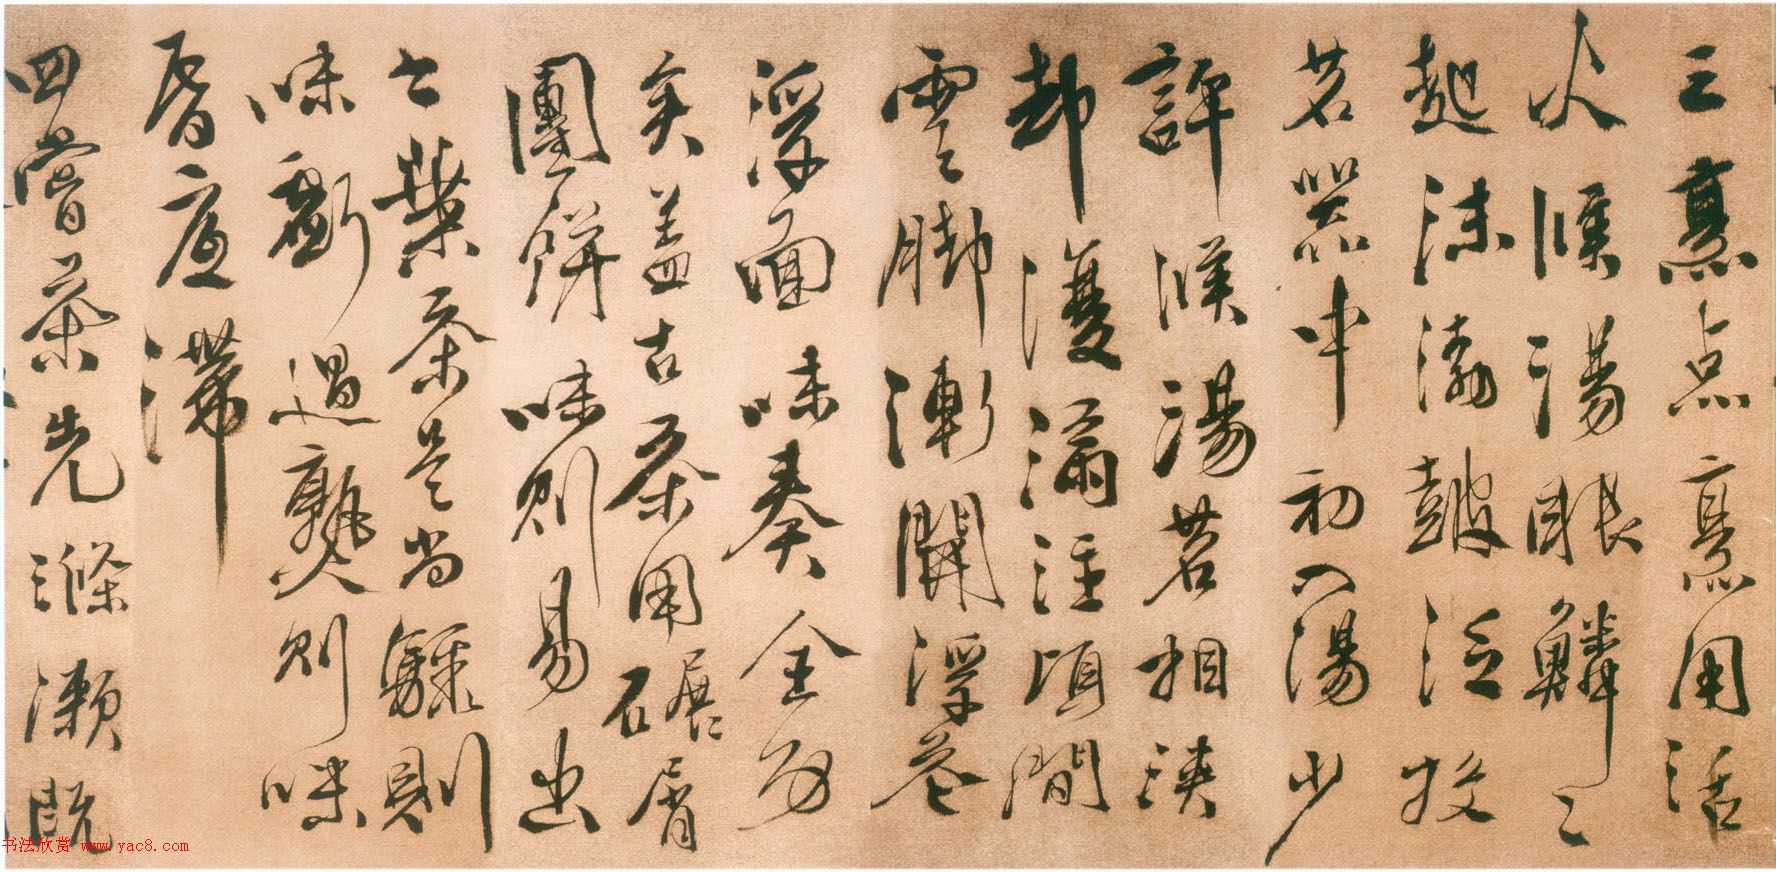 三烹点烹用活
火候湯眼鱗々
起沫渤鼓泛投
茗器中初入湯少
許候湯茗相浹
却復滿注頃間
雲脚漸開浮花
浮面味奏全功
矣盖古茶用碾屑
團餅味則易出
今葉茶是尚驟則
味虧過熟則味
昏底滯
四嘗茶先滌漱既
书法欣赏 www.yac8.com